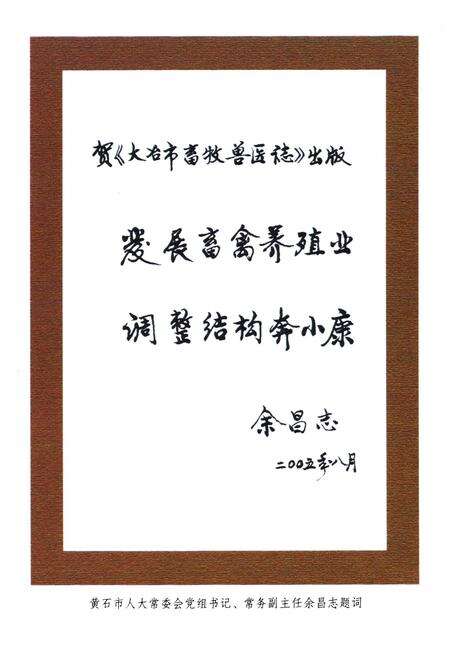 贺《大冶市畜牧兽医誌》出版
发展畜禽养殖业
调整结构奔小康
余昌志
二〇〇五年八月
黄石市人大常委会党组书记、常务副主任余昌志题词